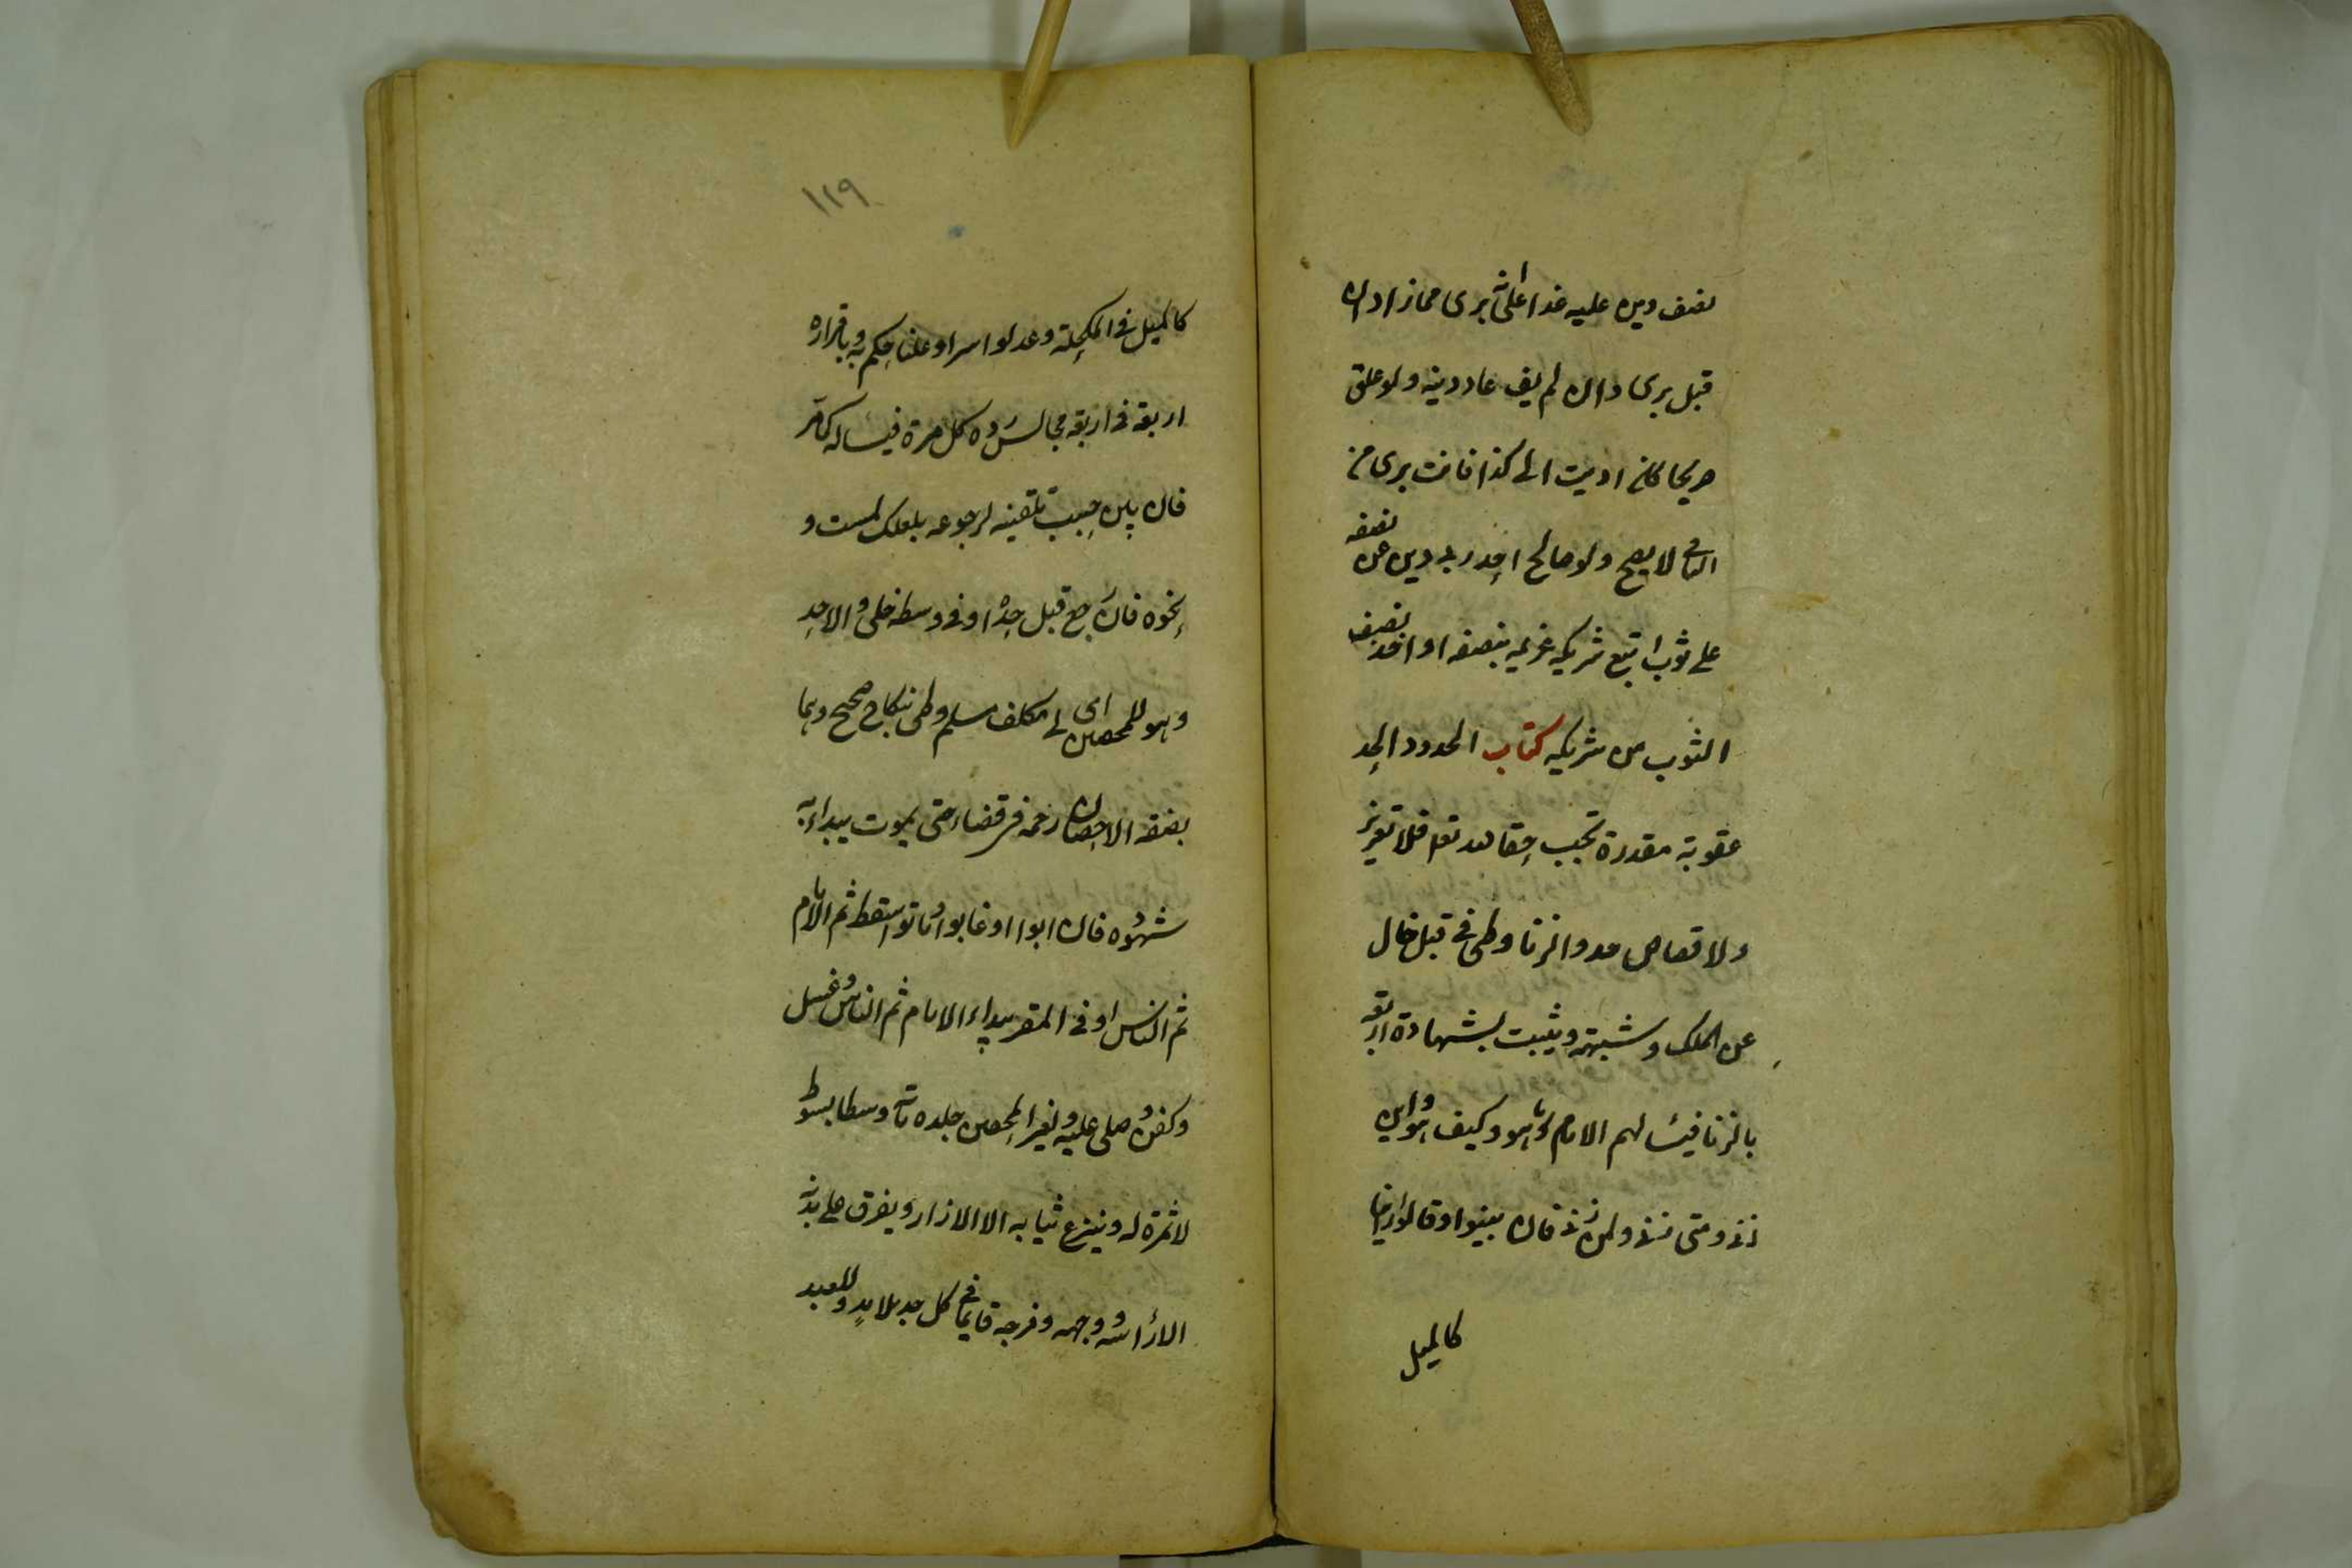 نصف دين عليه غدا على انه برى مما زاد ان
قبل برى وان لم يف عاد دينه ولو علق
صريحا كان اديت الى كذا فانت برى من
الباقى لا يصح ولو صالح احد ربى دين عن نصفه
على ثوب اتبع شريكه غريمه بنصفه او اخذ نصف
الثوب من شريكه كتاب الحدود الحد
عقوبة مقدرة تجب حقا لله تعالى فلا تعزير
ولا قصاص حد والزنا وطى فى قبل خال
عن الملك وشبهته ويثبت بشهادة اربعة
بالزنا فيسالهم الامام ما هو وكيف هو واين
زنى ومتى زنى ولمن زنى فان بينوا وقالوا راينا
كالميل
١١٩
كالميل فى المكحلة وعدلوا سرا وعلنا حكم به وباقراره
اربعة فى اربعة مجالس رده كل مرة فيساله كما مر
فان بين حبب تلقينه لرجوعه بلعلك لمست و
نحوه فان رجع قبل حده او فى وسطه خلى والا حد
وهو للمحصن اى لمكلف مسلم وطى بنكاح صحيح وهما
بصفة الاحصان رجمه فى قضاء حتى يموت يبداء به
شهوده فان ابوا او غابوا او ماتوا سقط ثم الامام
ثم الناس او فى المقر يبداء الامام ثم الناس وغسل
وكفن وصلى عليه ولغير المحصن جلده مائة وسطا بسوط
لا ثمرة له وينزع ثيابه الا الازار ويفرق على بدنه
الا راسه ووجهه وفرجه قايما فى كل حد بلا مد وللعبد